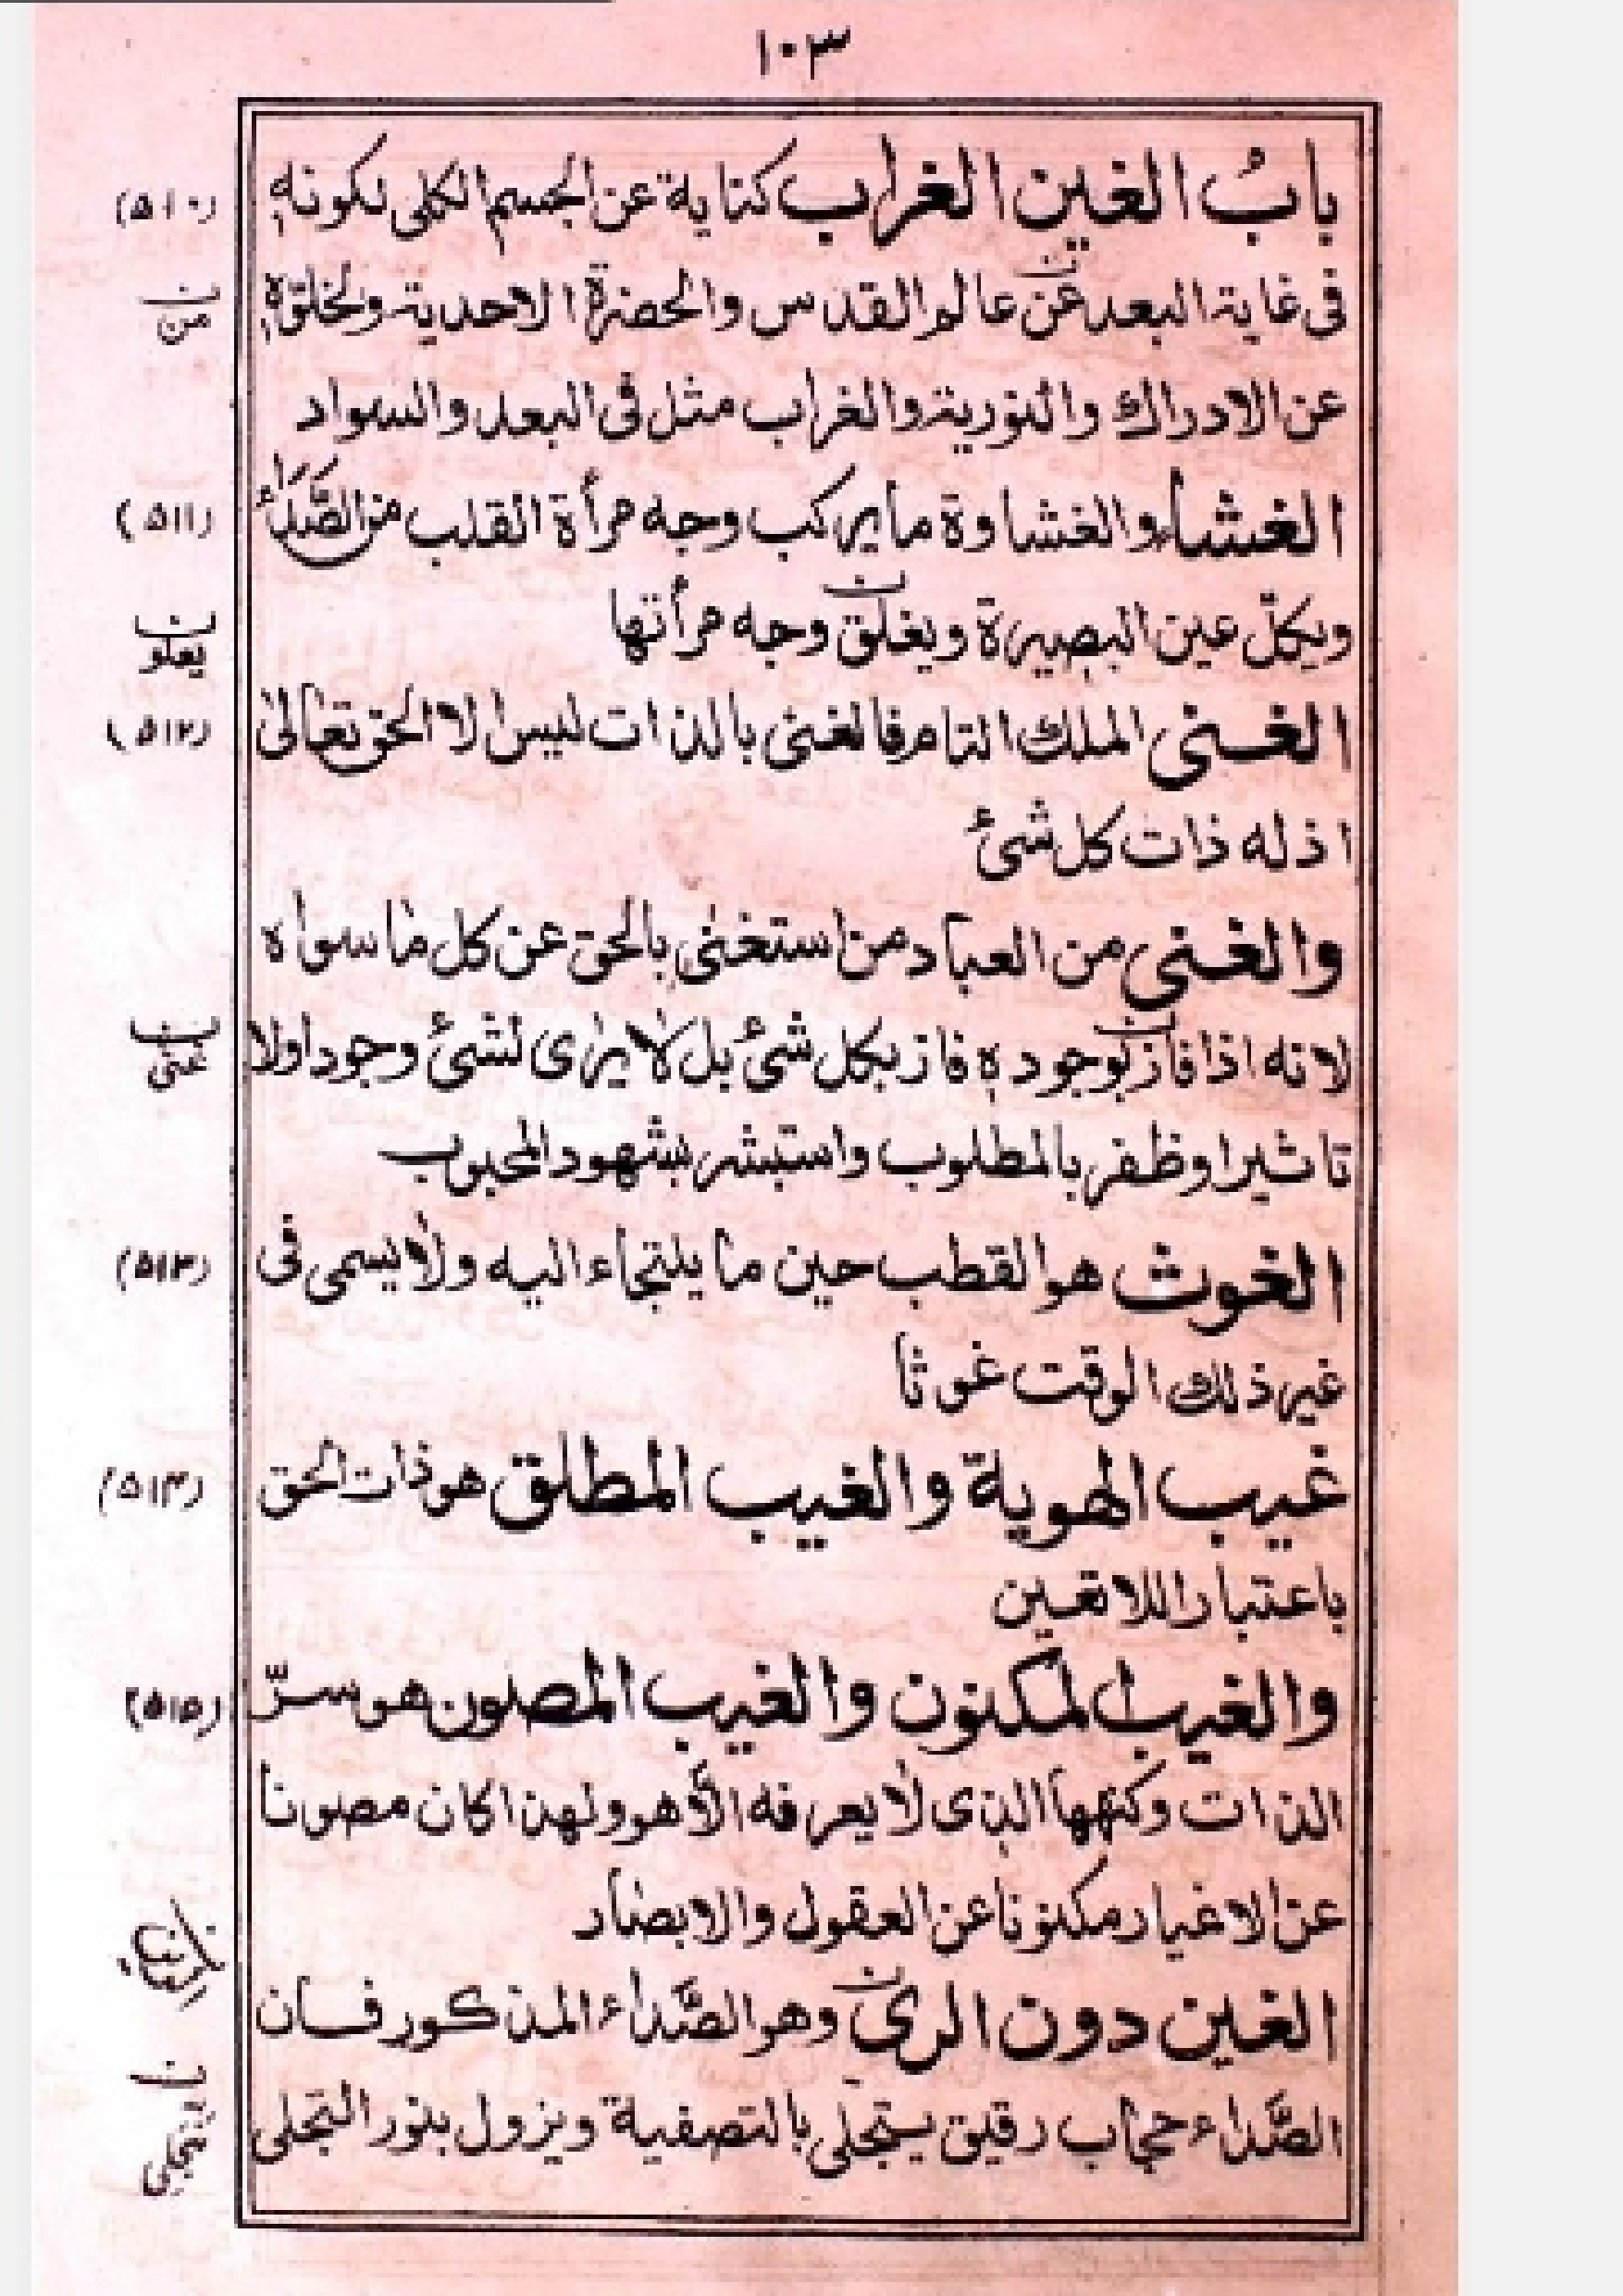 ١٠٣
بابُ الغين الغراب كناية عن الجسم الكلى لكونه (٥١٠)
فى غاية البعد عن عالم القدس والحضرة الاحدية ولخلوّه ن من
عن الادراك والنورية والغراب مثل فى البعد والسواد
الغشاء والغشاوة ما يركب وجه مرأة القلب من الصَّدَاء (٥١١)
ويكلّ عين البصيرة ويغلق وجه مرأتها ن يعلو
الغنى الملك التام فالغنى بالذات ليس الا الحق تعالىٰ (٥١٢)
اذ له ذات كل شئ
والغنى من العباد من استغنى بالحق عن كل ما سواه
لانه اذا فاز بوجوده فاز بكل شئ بل لا يرى لشئ وجودا ولا ن عنى
تاثيرا وظفر بالمطلوب واستبشر بشهود المحبوب
الغوث هو القطب حين ما يلتجاء اليه ولا يسمى فى (٥١٣)
غير ذلك الوقت غوثا
غيب الهوية والغيب المطلق هو ذات الحق (٥١٤)
باعتبار اللاتعين
والغيب المكنون والغيب المصون هو سرّ (٥١٥)
الذات وكنهها الذى لا يعرفه الا هو ولهذا كان مصونا
عن الاغيار مكنونا عن العقول والابصار
الغين دون الرى وهو الصَّداء المذكور فان ن الرين
الصَّداء حجاب رقيق يتجلى بالتصفية ويزول بنور التجلى